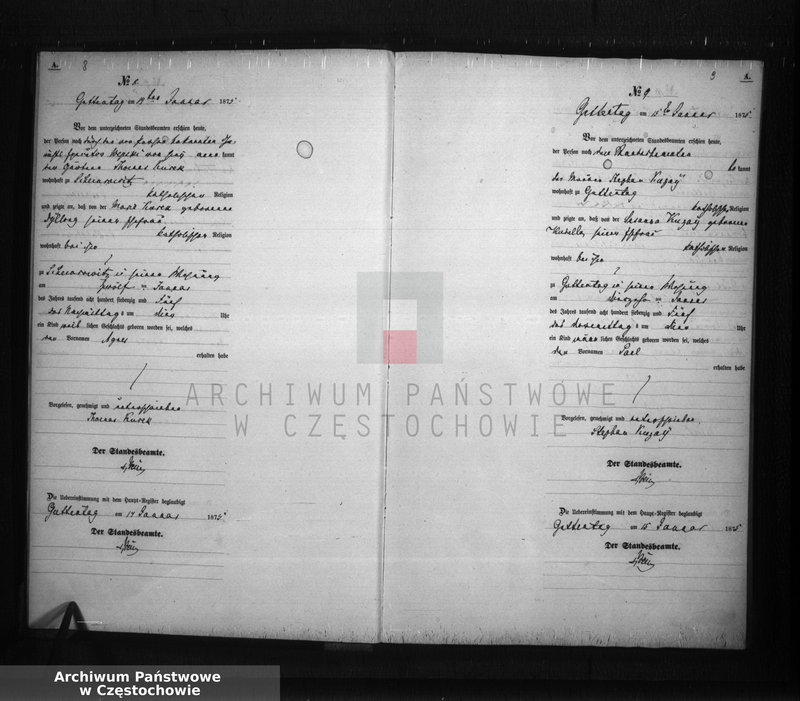 A. 8
№ 8
Guttentag am 14ten Januar 1875
Vor dem unterzeichneten Standesbeamten erschien heute,
der Person nach
kannt
Thomas Kurek
wohnhaft zu
katholischer Religion
und zeigte an, daß von der Marie Kurek geborenen
seiner Ehefrau
katholischer Religion
wohnhaft bei ihm
zu in seiner Wohnung
am zwölf ten Januar
des Jahres tausend acht hundert siebenzig und fünf
des Nachmittags um Uhr
ein Kind weib lichen Geschlechts geboren worden sei, welches
den Vornamen Agnes
erhalten habe
Vorgelesen, genehmigt und unterschrieben
Thomas Kurek
Der Standesbeamte.
Die Uebereinstimmung mit dem Haupt-Register beglaubigt
Guttentag am 14 Januar 1875
Der Standesbeamte.
9 A.
№ 9.
Guttentag am 15ten Januar 1875
Vor dem unterzeichneten Standesbeamten erschien heute,
der Person nach dem Standesbeamten
be kannt
der Maurer Stephan Kuzaÿ
wohnhaft zu Guttentag
katholischer Religion
und zeigte an, daß von der Susanna Kuzaÿ geborenen
seiner Ehefrau
katholischer Religion
wohnhaft bei ihm
zu Guttentag in seiner Wohnung
am vierzehn ten Januar
des Jahres tausend acht hundert siebenzig und fünf
des Uhr
ein Kind männ lichen Geschlechts geboren worden sei, welches
den Vornamen Paul
erhalten habe
Vorgelesen, genehmigt und unterschrieben
Stephan Kuzaÿ
Der Standesbeamte.
Die Uebereinstimmung mit dem Haupt-Register beglaubigt
Guttentag am 15 Januar 1875
Der Standesbeamte.
ARCHIWUM PAŃSTWOWE
W CZĘSTOCHOWIE
Archiwum Państwowe
w Częstochowie